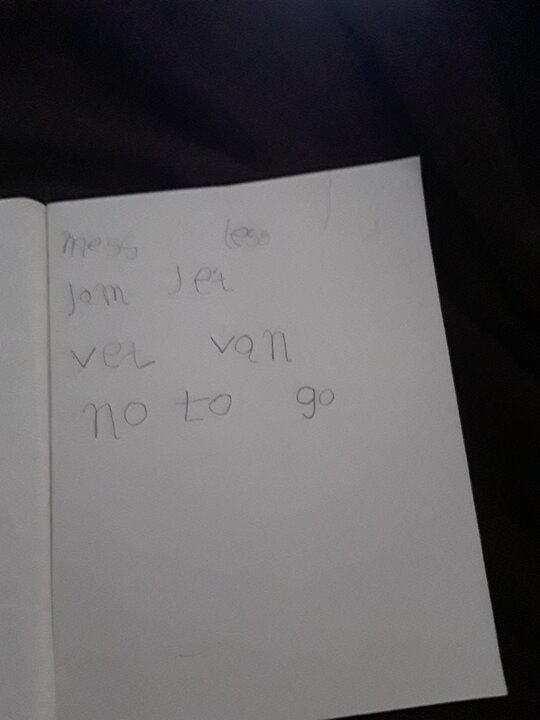 mess less
jam jet
vet van
no to go